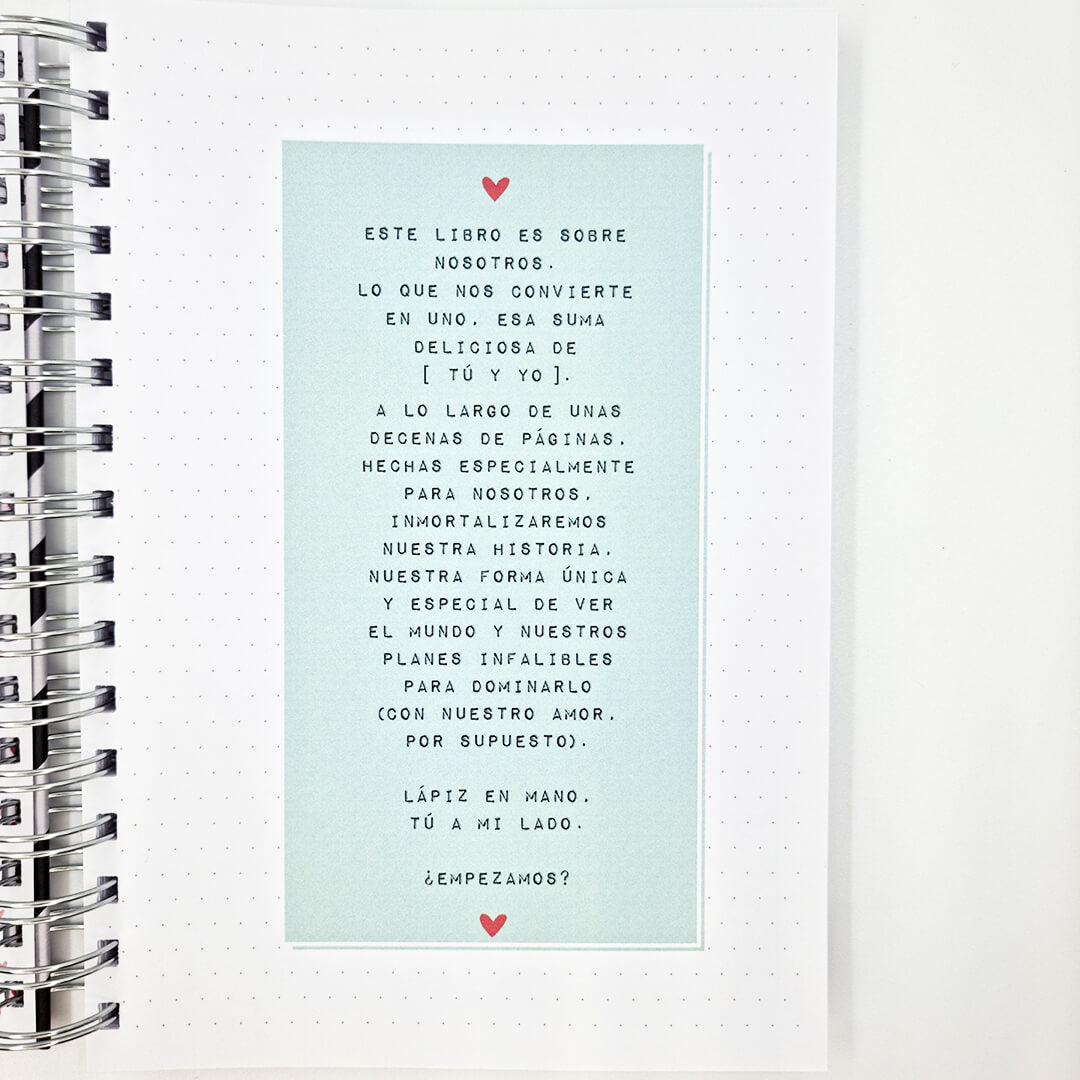 ESTE LIBRO ES SOBRE
NOSOTROS.
LO QUE NOS CONVIERTE
EN UNO. ESA SUMA
DELICIOSA DE
[ TÚ Y YO ].
A LO LARGO DE UNAS
DECENAS DE PÁGINAS,
HECHAS ESPECIALMENTE
PARA NOSOTROS,
INMORTALIZAREMOS
NUESTRA HISTORIA,
NUESTRA FORMA ÚNICA
Y ESPECIAL DE VER
EL MUNDO Y NUESTROS
PLANES INFALIBLES
PARA DOMINARLO
(CON NUESTRO AMOR,
POR SUPUESTO).
LÁPIZ EN MANO,
TÚ A MI LADO.
¿EMPEZAMOS?